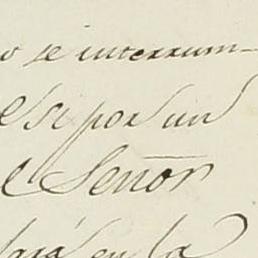 o se interrum-
e si por un
el Señor
en la